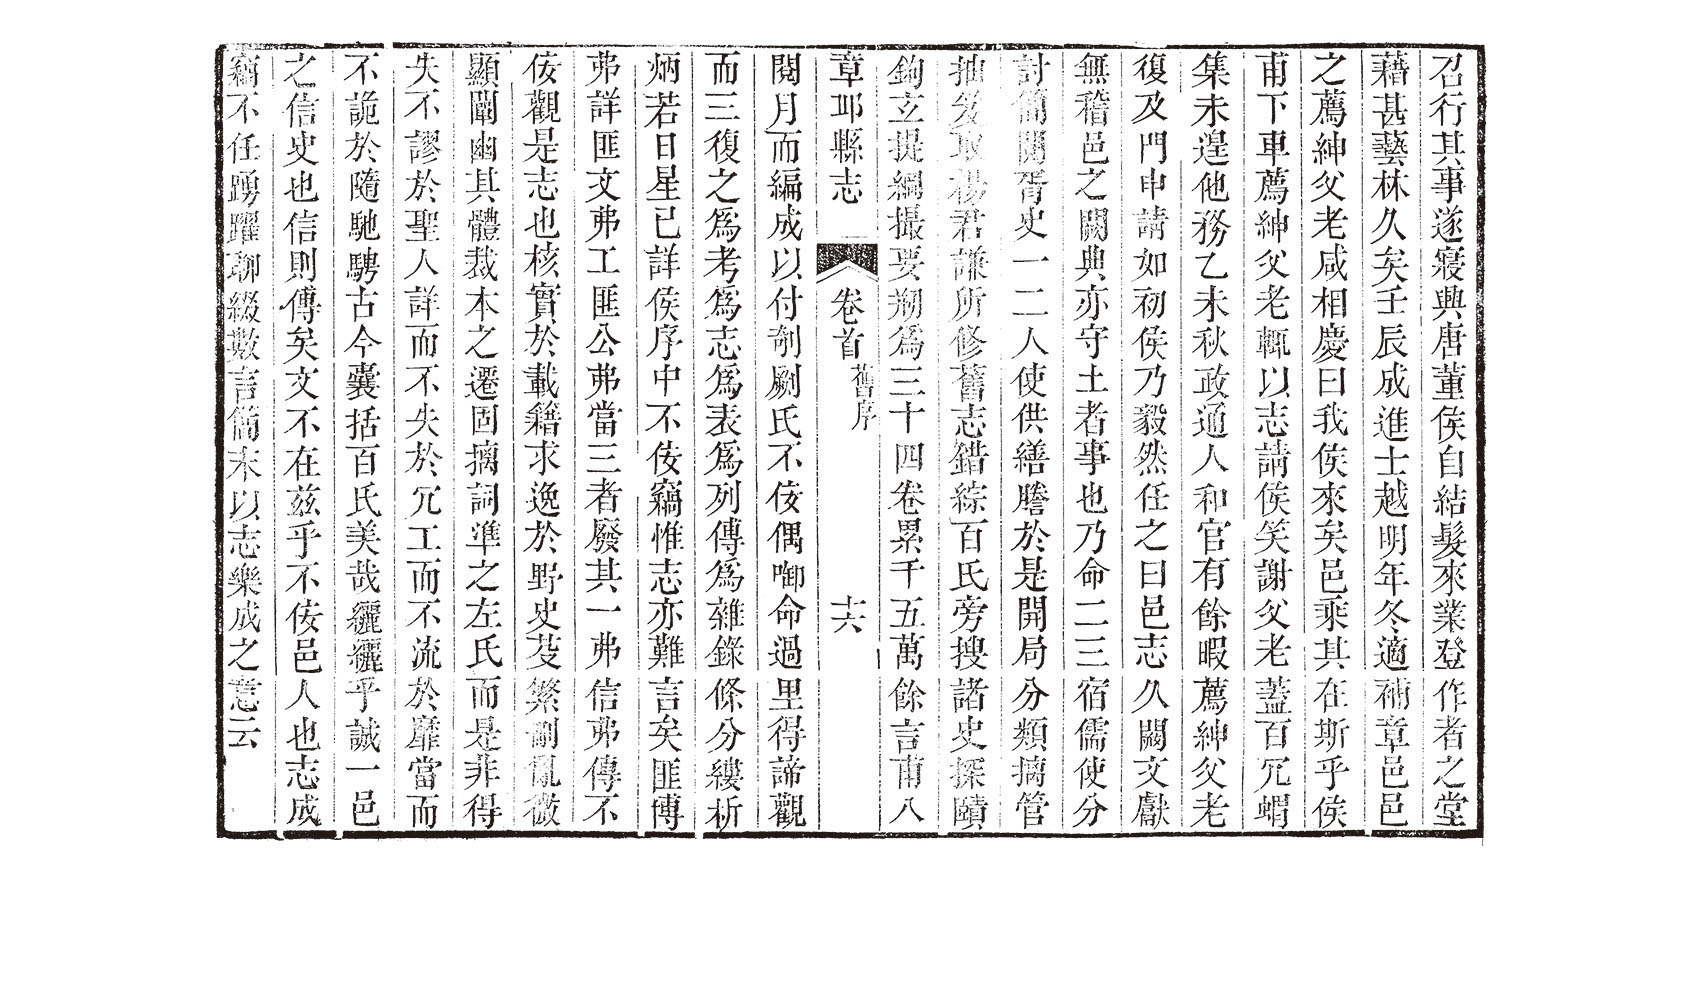 召行其事遂寢興唐董侯自結髮來業登作者之堂
藉甚藝林久矣壬辰成進士越明年冬適補章邑邑
之薦紳父老咸相慶曰我侯來矣邑乘其在斯乎侯
甫下車薦紳父老輒以志請侯笑謝父老蓋百冗蝟
集未遑他務乙未秋政通人和官有餘暇薦紳父老
復及門申請如初侯乃毅然任之曰邑志久闕文獻
無稽邑之闕典亦守土者事也乃命二三宿儒使分
討簡閱胥史一二人使供繕謄於是開局分類摛管
抽笈取楊君謙所修舊志錯綜百氏旁搜諸史探賾
鉤玄提綱撮要刱爲三十四卷累千五萬餘言甫八
章邱縣志 卷首 舊序 十六
閱月而編成以付剞劂氏不佞偶啣命過里得諦觀
而三復之爲考爲志爲表爲列傳爲雜錄條分縷析
炳若日星已詳侯序中不佞竊惟志亦難言矣匪博
弗詳匪文弗工匪公弗當三者廢其一弗信弗傳不
佞觀是志也核實於載籍求逸於野史芟繁劚亂微
顯闡幽其體裁本之遷固摛詞準之左氏而是非得
失不謬於聖人詳而不失於冗工而不流於靡當而
不詭於隨馳騁古今囊括百氏美哉纚纚乎誠一邑
之信史也信則傳矣文不在茲乎不佞邑人也志成
竊不任踴躍聊綴數言簡末以志樂成之意云